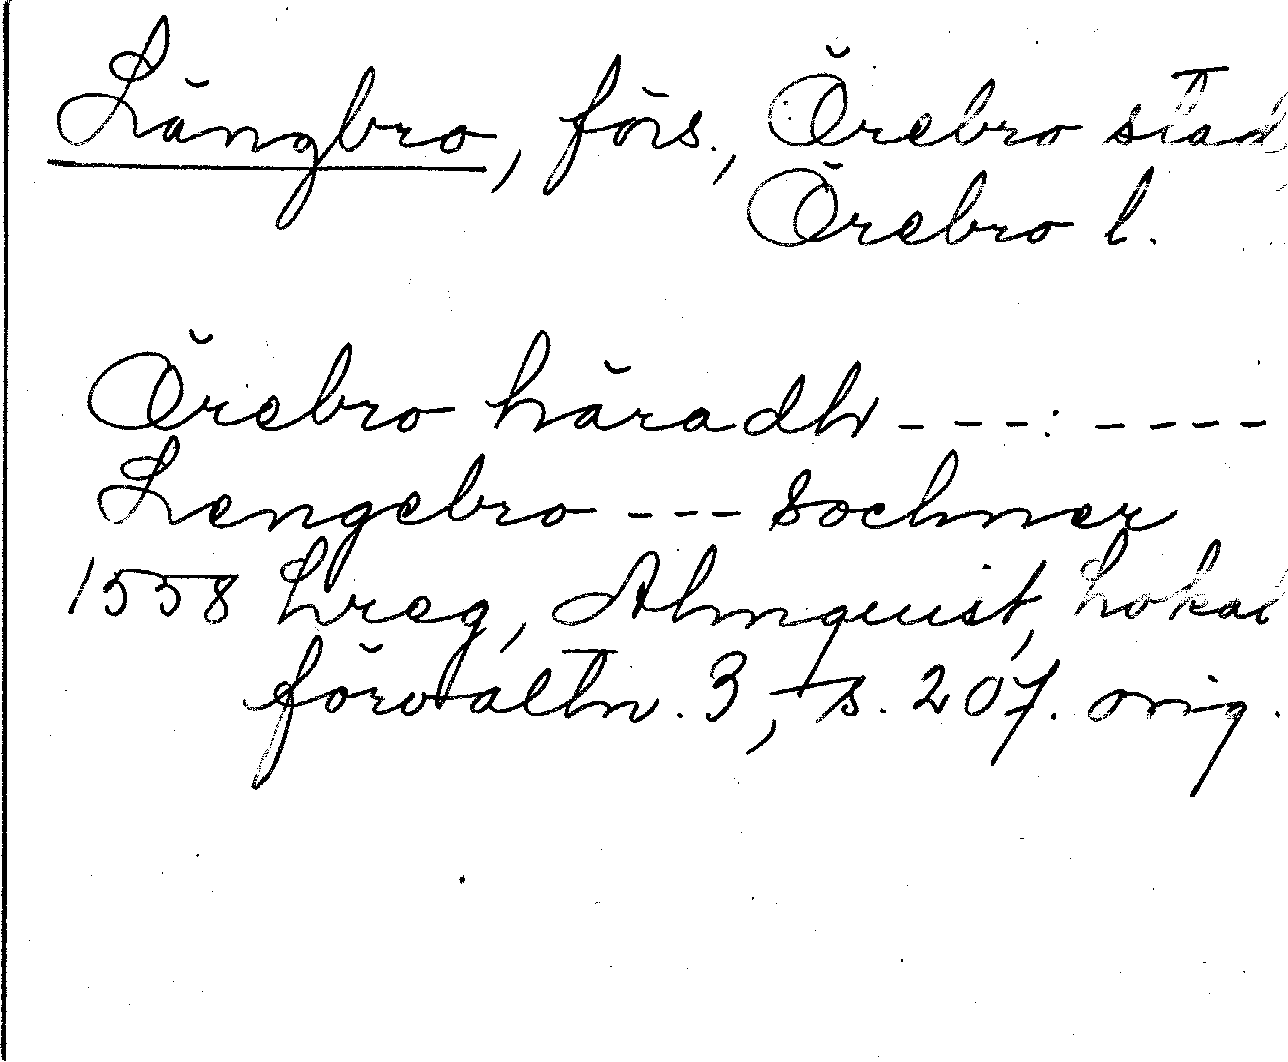 Längbro, förs., Örebro stad,
Örebro l.
Örebro häradh ---: ----
Lengebro --- sochner
1558 Lreg, Almquist, Lokal
förvaltn. 3, s. 207. orig.